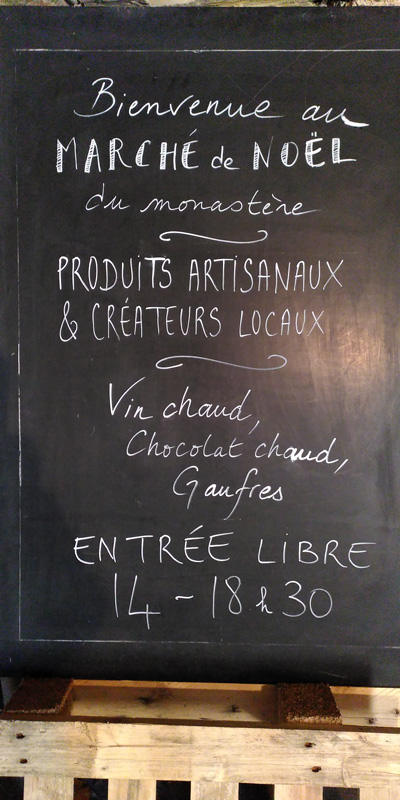 Bienvenue au
MARCHÉ de NOËL
du monastère
PRODUITS ARTISANAUX
& CRÉATEURS LOCAUX
Vin chaud,
Chocolat chaud,
Gaufres
ENTRÉE LIBRE
14 - 18 h 30